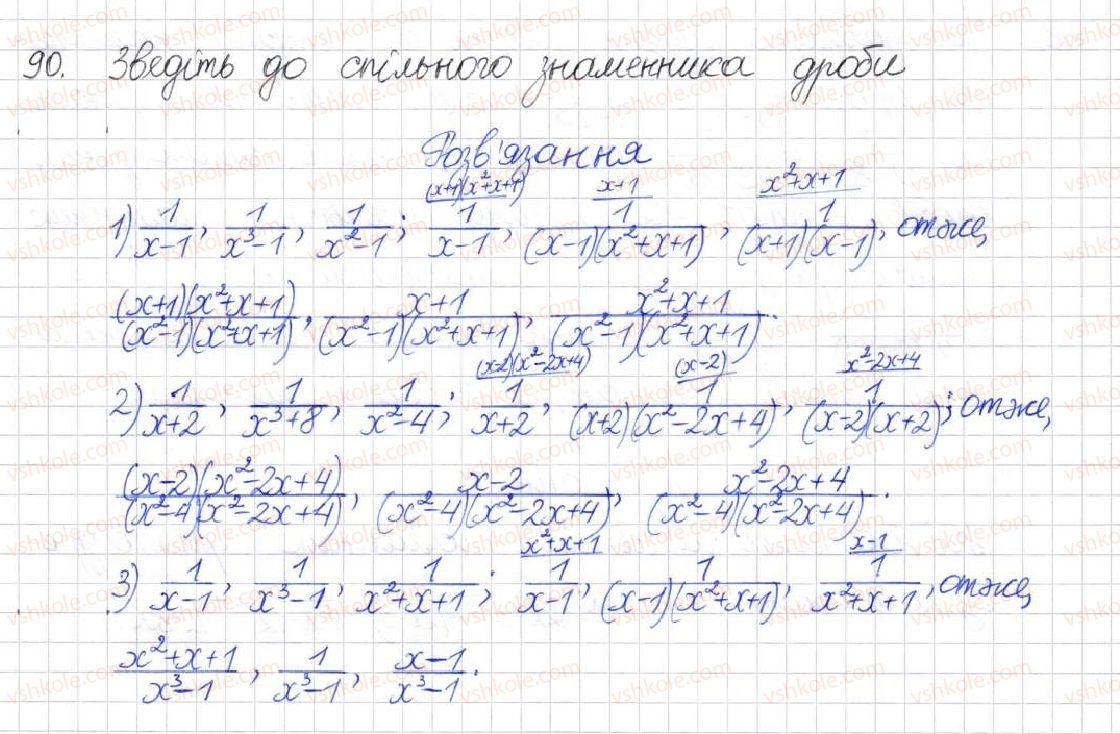 90. Зведіть до спільного знаменника дроби
Розв'язання
1) 1/(x-1), 1/(x³-1), 1/(x²-1); (x+1)(x²+x+1) 1/(x-1), x+1 1/((x-1)(x²+x+1)), x²+x+1 1/((x+1)(x-1)), отже,
(x+1)(x²+x+1)/((x²-1)(x²+x+1)), (x+1)/((x²-1)(x²+x+1)), (x²+x+1)/((x²-1)(x²+x+1)).
2) 1/(x+2), 1/(x³+8), 1/(x²-4); (x-2)(x²-2x+4) 1/(x+2), (x-2) 1/((x+2)(x²-2x+4)), x²-2x+4 1/((x-2)(x+2)); отже,
(x-2)(x²-2x+4)/((x²-4)(x²-2x+4)), (x-2)/((x²-4)(x²-2x+4)), (x²-2x+4)/((x²-4)(x²-2x+4)).
3) 1/(x-1), 1/(x³-1), 1/(x²+x+1); x²+x+1 1/(x-1), 1/((x-1)(x²+x+1)), x-1 1/(x²+x+1), отже,
(x²+x+1)/(x³-1), 1/(x³-1), (x-1)/(x³-1).